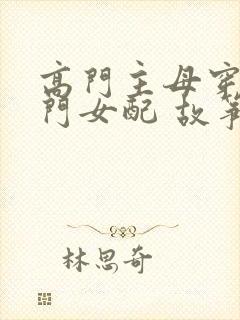 高門主母穿
門女配 故事
林思奇